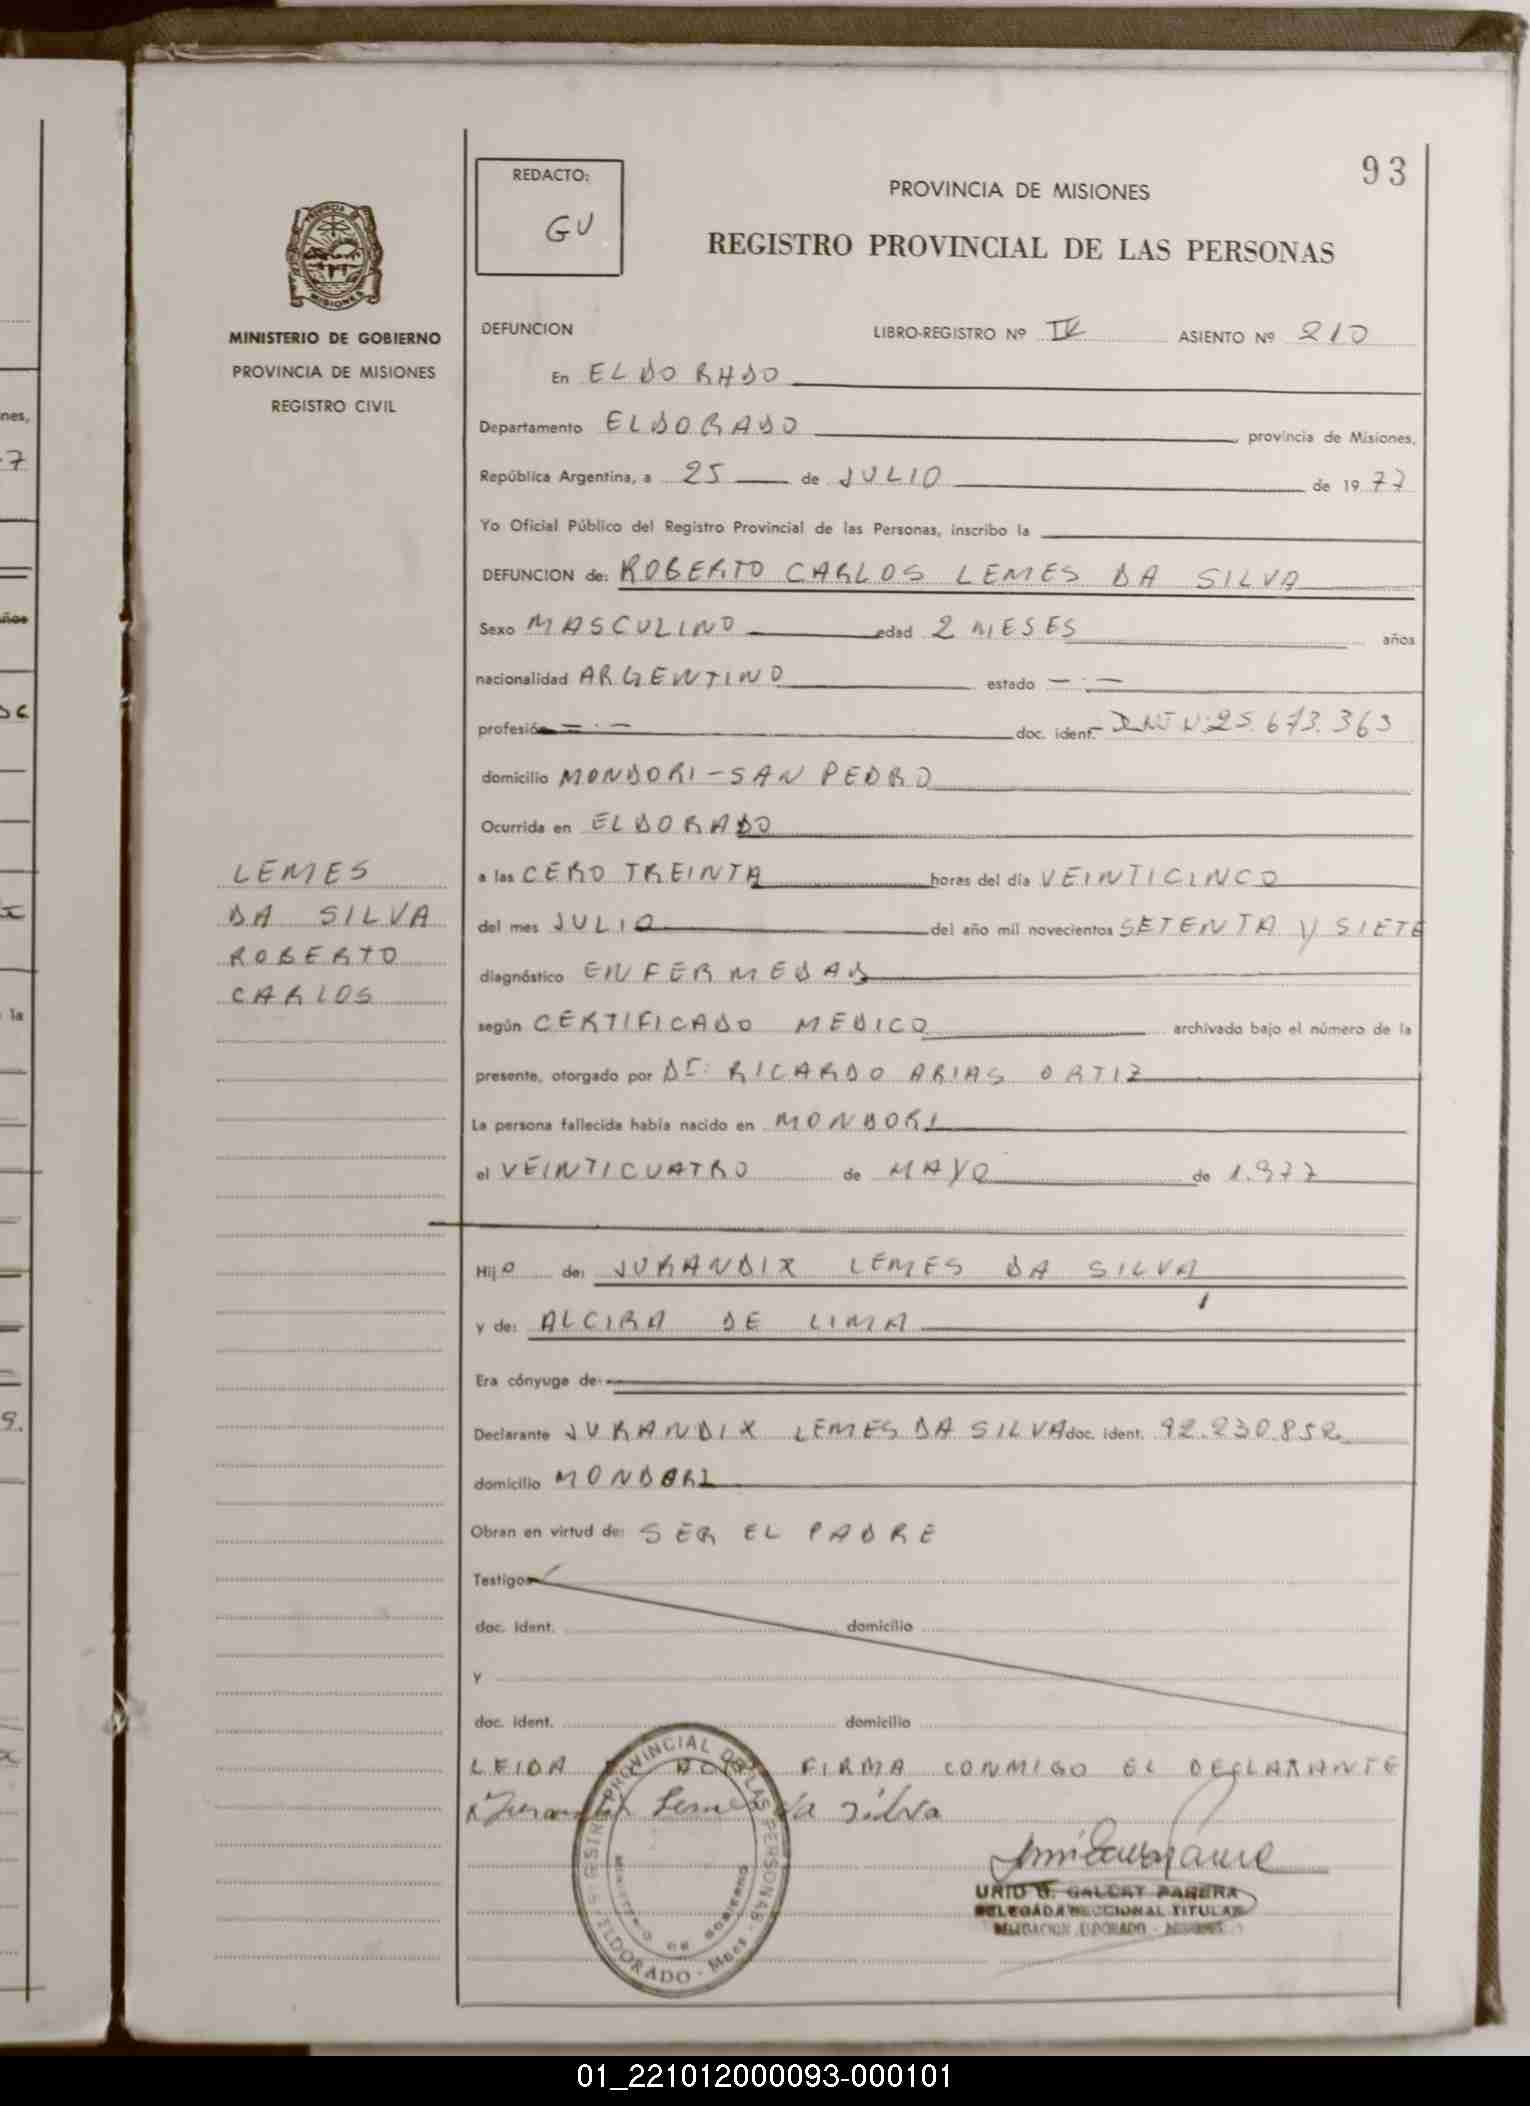 93
REDACTO:
GU
PROVINCIA DE MISIONES
REGISTRO PROVINCIAL DE LAS PERSONAS
MISIONES
MINISTERIO DE GOBIERNO
PROVINCIA DE MISIONES
REGISTRO CIVIL
DEFUNCION LIBRO-REGISTRO Nº ASIENTO Nº 210
En ELDORADO
Departamento ELDORADO provincia de Misiones,
República Argentina, a 25 de JULIO de 1977
Yo Oficial Público del Registro Provincial de las Personas, inscribo la
DEFUNCION de: ROBERTO CARLOS LEMES DA SILVA
Sexo MASCULINO edad 2 MESES años
nacionalidad ARGENTINO estado — · —
profesión = · — doc. ident. DNI Nº 25.673.363
domicilio MONDORI - SAN PEDRO
Ocurrida en ELDORADO
a las CERO TREINTA horas del día VEINTICINCO
del mes JULIO del año mil novecientos SETENTA Y SIETE
diagnóstico ENFERMEDAD
según CERTIFICADO MEDICO archivado bajo el número de la
presente, otorgado por Dr: RICARDO ARIAS ORTIZ
La persona fallecida había nacido en MONDORI
el VEINTICUATRO de MAYO de 1.977
Hijo de: JURANDIX LEMES DA SILVA
y de: ALCIRA DE LIMA
Era cónyuge de:
Declarante JURANDIX LEMES DA SILVA doc. ident. 92.230.852
domicilio MONDORI
Obran en virtud de: SER EL PADRE
Testigos
doc. ident. domicilio
y
doc. ident. domicilio
LEIDA FIRMA CONMIGO EL DECLARANTE
Lemes da Silva
LEMES
DA SILVA
ROBERTO
CARLOS
REGISTRO PROVINCIAL DE LAS PERSONAS
MINISTERIO DE GOBIERNO
ELDORADO - Mnes
PARERA
DELEGADA SECCIONAL TITULAR
DELEGACION ELDORADO - MISIONES
01_221012000093-000101